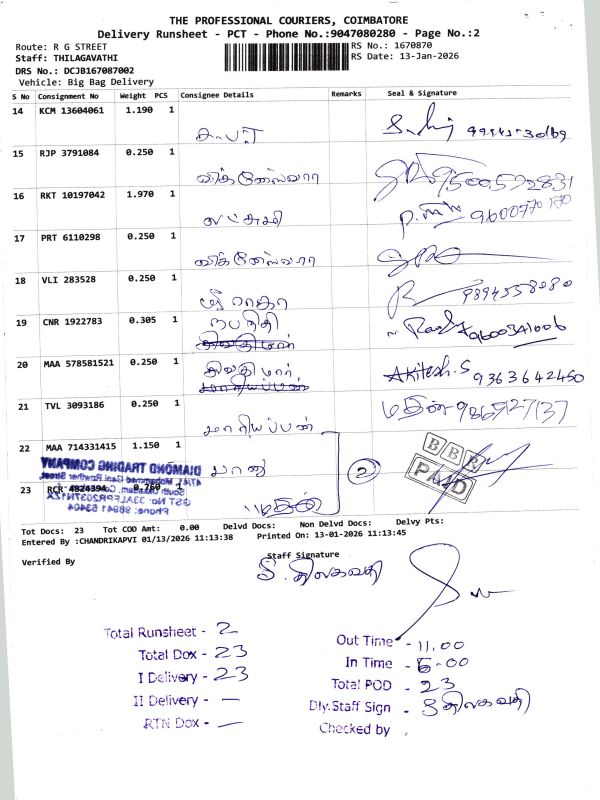 THE PROFESSIONAL COURIERS, COIMBATORE
Delivery Runsheet - PCT - Phone No.:9047080280 - Page No.:2
Route: R G STREET
RS No.: 1670870
Staff: THILAGAVATHI
RS Date: 13-Jan-2026
DRS No.: DCJB167087002
Vehicle: Big Bag Delivery
S No Consignment No Weight PCS Consignee Details Remarks Seal & Signature
14 KCM 13604061 1.190 1
15 RJP 3791084 0.250 1
விக்னேஸ்வரா 9500592831
16 RKT 10197042 1.970 1
லட்சுமி 9600770170
17 PRT 6110298 0.250 1
விக்னேஸ்வரா
18 VLI 283528 0.250 1
ஸ்ரீ ராகா 9894558080
19 CNR 1922783 0.305 1
நபநிதி 9600341006
20 MAA 578581521 0.250 1
Akitesh.S 9363642450
21 TVL 3093186 0.250 1
மாரியப்பன்
22 MAA 714331415 1.150 1
பானு
2
BBR
PAID
DIAMOND TRADING COMPANY
47/41, Mohammed Gani Rowther Street,
South Ukkadam, Coimbatore
GST No: 33ALFPR2037N1ZA
Phone: 98941 53404
23 RCR 4824394 0.760 1
Tot Docs: 23 Tot COD Amt: 0.00 Delvd Docs: Non Delvd Docs: Delvy Pts:
Entered By :CHANDRIKAPVI 01/13/2026 11:13:38 Printed On: 13-01-2026 11:13:45
Verified By
Staff Signature
S. திலகவதி
Total Runsheet - 2
Total Dox - 23
I Delivery - 23
II Delivery - —
RTN Dox - —
Out Time - 11.00
In Time - 6-00
Total POD - 23
Dly.Staff Sign - S திலகவதி
Checked by